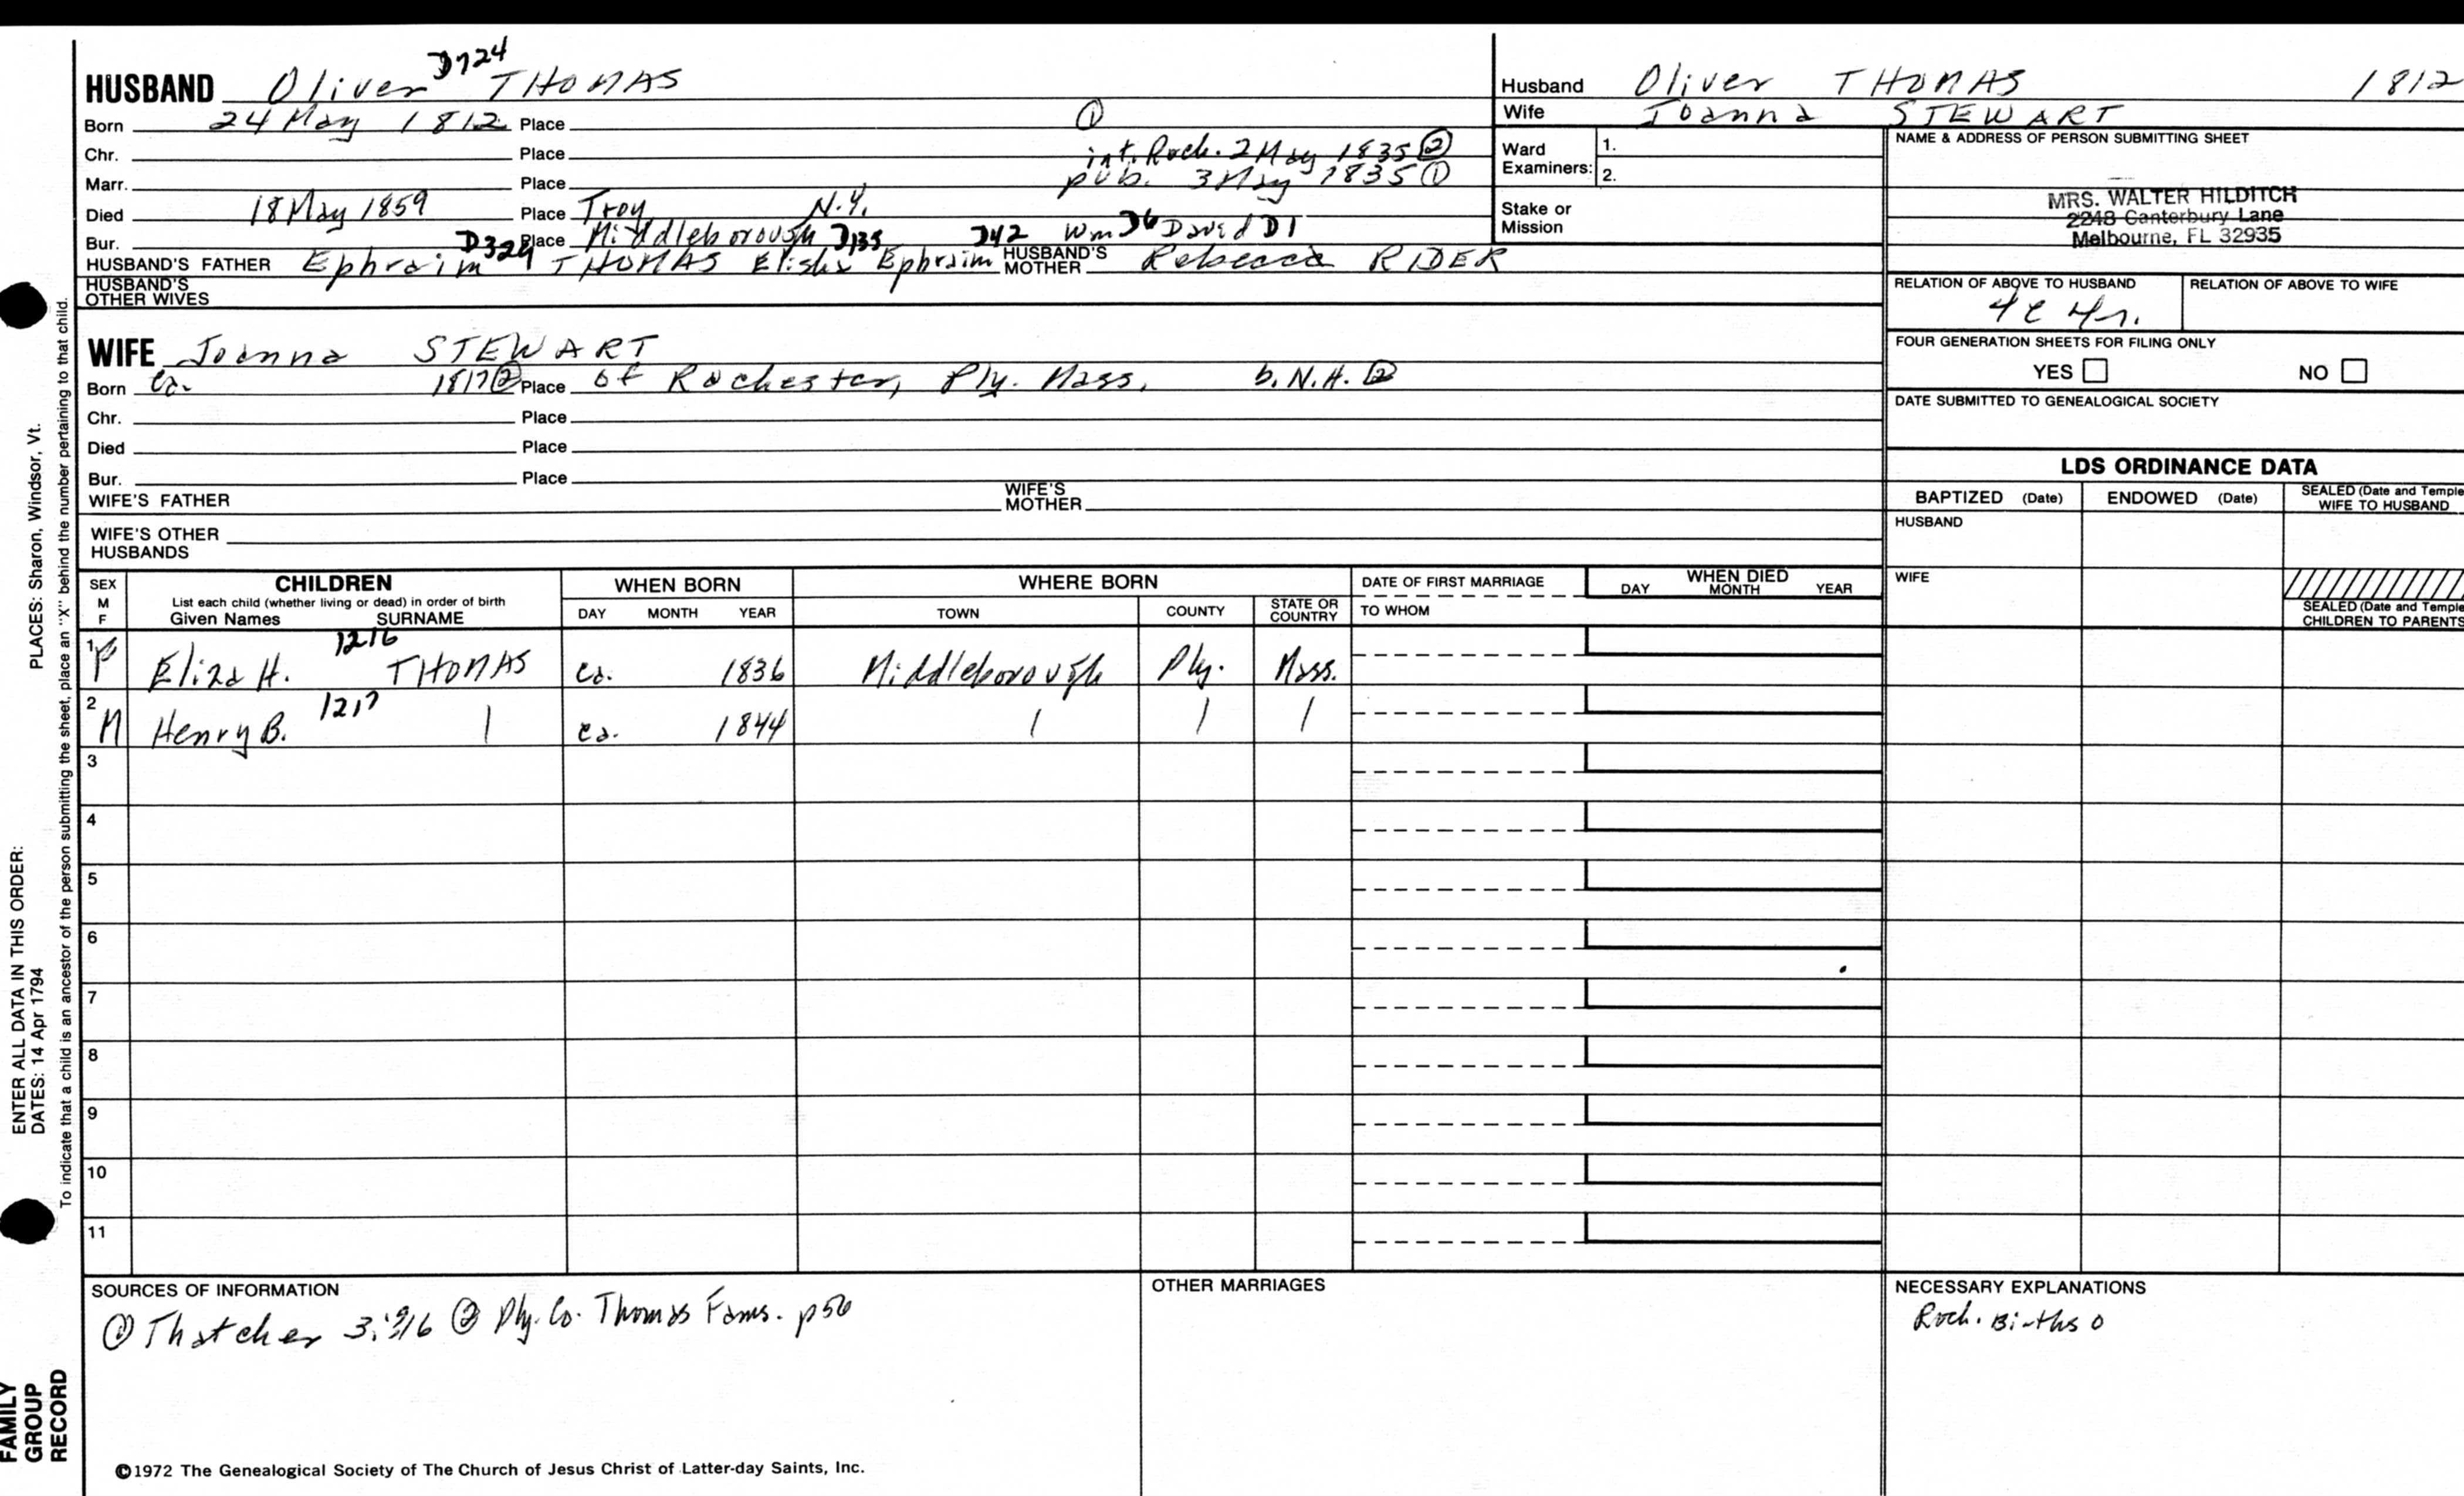 D724
HUSBAND Oliver THOMAS
Born 24 May 1812 Place ①
Chr. Place int. Roch. 2 May 1835 ②
Marr. Place pub. 3 May 1835 ①
Died 18 May 1859 Place Troy N.Y.
Bur. Place Middleborough
D329 D135 D42 Wm D6 David D1
HUSBAND'S FATHER Ephraim THOMAS Elisha Ephraim HUSBAND'S MOTHER Rebecca RIDER
HUSBAND'S OTHER WIVES
WIFE Joanna STEWART
Born Ca. 1817 ② Place of Rochester, Ply. Mass. b. N.H. ②
Chr. Place
Died Place
Bur. Place
WIFE'S FATHER WIFE'S MOTHER
WIFE'S OTHER HUSBANDS
Husband Oliver THOMAS 1812
Wife Joanna STEWART
Ward Examiners: 1.
2.
Stake or Mission
NAME & ADDRESS OF PERSON SUBMITTING SHEET
MRS. WALTER HILDITCH
2248 Canterbury Lane
Melbourne, FL 32935
RELATION OF ABOVE TO HUSBAND RELATION OF ABOVE TO WIFE
4c 4r.
FOUR GENERATION SHEETS FOR FILING ONLY
YES NO
DATE SUBMITTED TO GENEALOGICAL SOCIETY
LDS ORDINANCE DATA
BAPTIZED (Date) ENDOWED (Date) SEALED (Date and Temple WIFE TO HUSBAND
HUSBAND
WIFE
SEALED (Date and Temple
CHILDREN TO PARENTS
SEX M F CHILDREN WHEN BORN WHERE BORN DATE OF FIRST MARRIAGE WHEN DIED
List each child (whether living or dead) in order of birth
Given Names SURNAME DAY MONTH YEAR TOWN COUNTY STATE OR COUNTRY TO WHOM DAY MONTH YEAR
1216
1 F Eliza H. THOMAS ca. 1836 Middleborough Ply. Mass.
1217
2 M Henry B. | ca. 1844 | | |
3
4
5
6
7
8
9
10
11
SOURCES OF INFORMATION
① Thatcher 3:916 ② Ply. Co. Thomas Fams. p56
OTHER MARRIAGES
NECESSARY EXPLANATIONS
Roch. Births 0
©1972 The Genealogical Society of The Church of Jesus Christ of Latter-day Saints, Inc.
PLACES: Sharon, Windsor, Vt.
ENTER ALL DATA IN THIS ORDER:
DATES: 14 Apr 1794
To indicate that a child is an ancestor of the person submitting the sheet, place an "X" behind the number pertaining to that child.
FAMILY
GROUP
RECORD